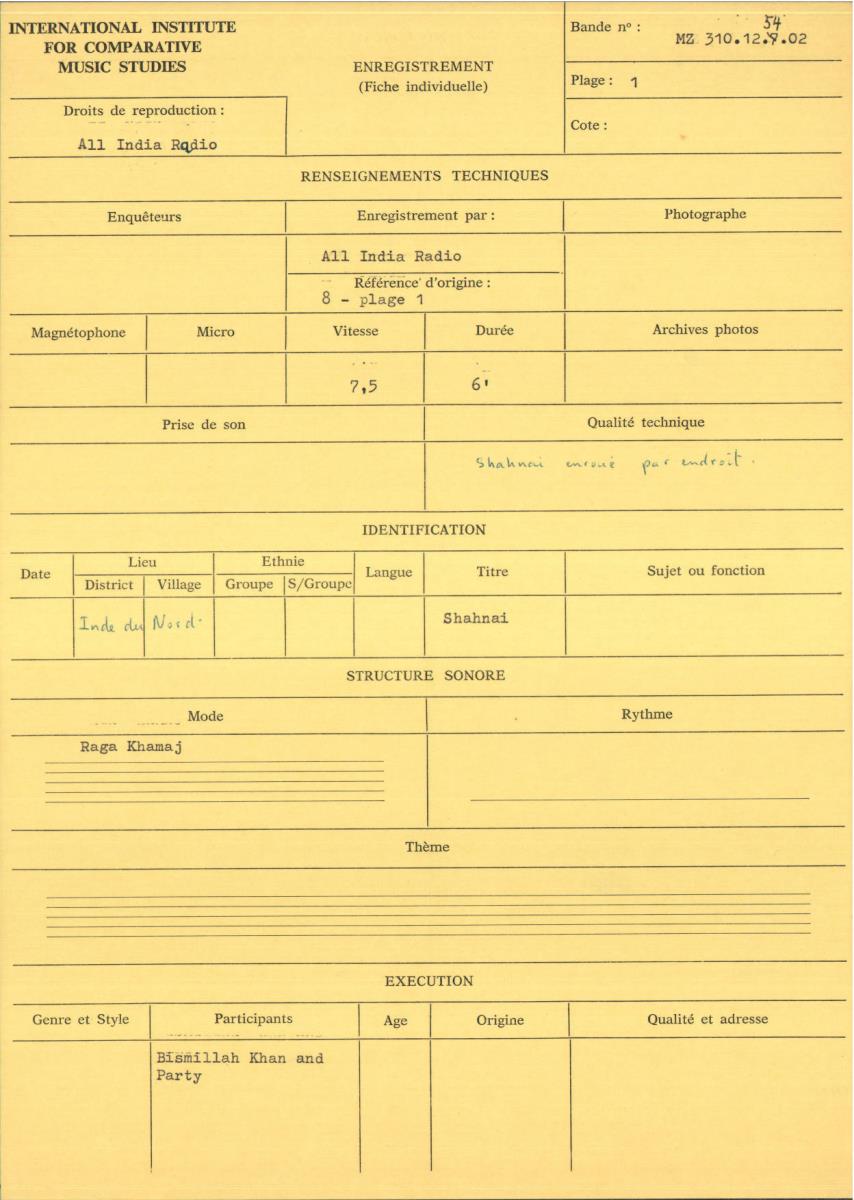 INTERNATIONAL INSTITUTE
FOR COMPARATIVE
MUSIC STUDIES
Droits de reproduction :
All India Radio
ENREGISTREMENT
(Fiche individuelle)
Bande nº :
54
MZ 310.12.7.02
Plage : 1
Cote :
RENSEIGNEMENTS TECHNIQUES
Enquêteurs
Enregistrement par :
Photographe
All India Radio
Référence d'origine :
8 - plage 1
Magnétophone
Micro
Vitesse
Durée
Archives photos
7,5
6'
Prise de son
Qualité technique
Shahnai enroué par endroit.
IDENTIFICATION
Date
Lieu
Ethnie
Langue
Titre
Sujet ou fonction
District
Village
Groupe
S/Groupe
Inde du Nord.
Shahnai
STRUCTURE SONORE
Mode
Rythme
Raga Khamaj
Thème
EXECUTION
Genre et Style
Participants
Age
Origine
Qualité et adresse
Bismillah Khan and
Party